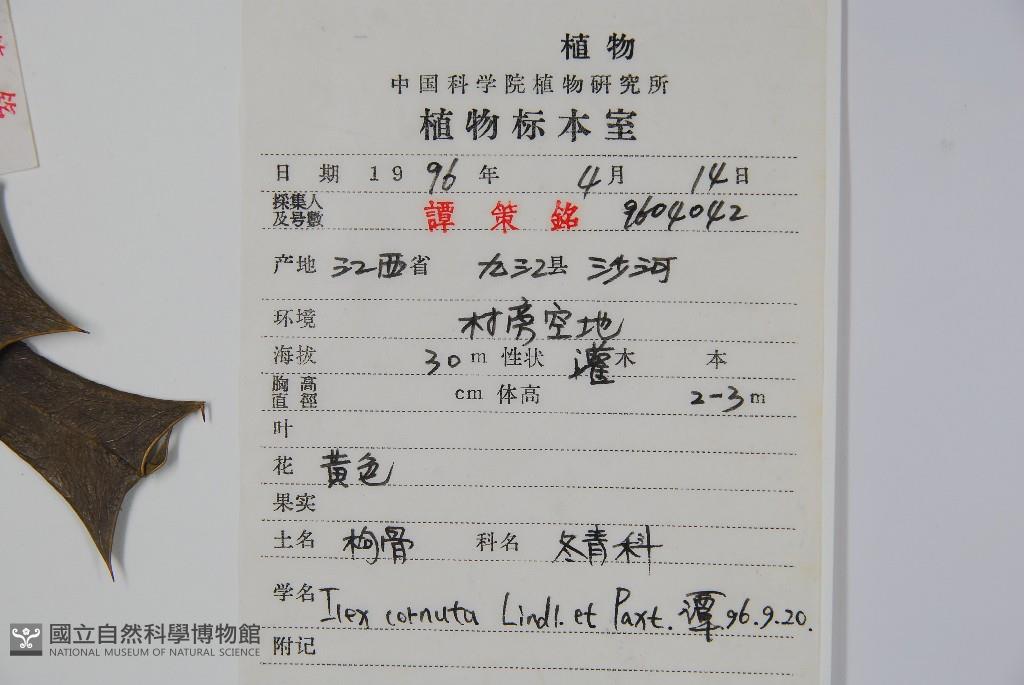 銘
植物
中国科学院植物研究所
植物标本室
日期 19 96 年 4 月 14 日
採集人及号數 譚策銘 9604042
产地 江西省 九江县 沙河
环境 村旁空地
海拔 30 m 性状 灌木 本
胸高直徑 cm 体高 2-3 m
叶
花 黄色
果实
土名 枸骨 科名 冬青科
学名 Ilex cornuta Lindl. et Paxt. 谭 96.9.20.
附记
國立自然科學博物館
NATIONAL MUSEUM OF NATURAL SCIENCE